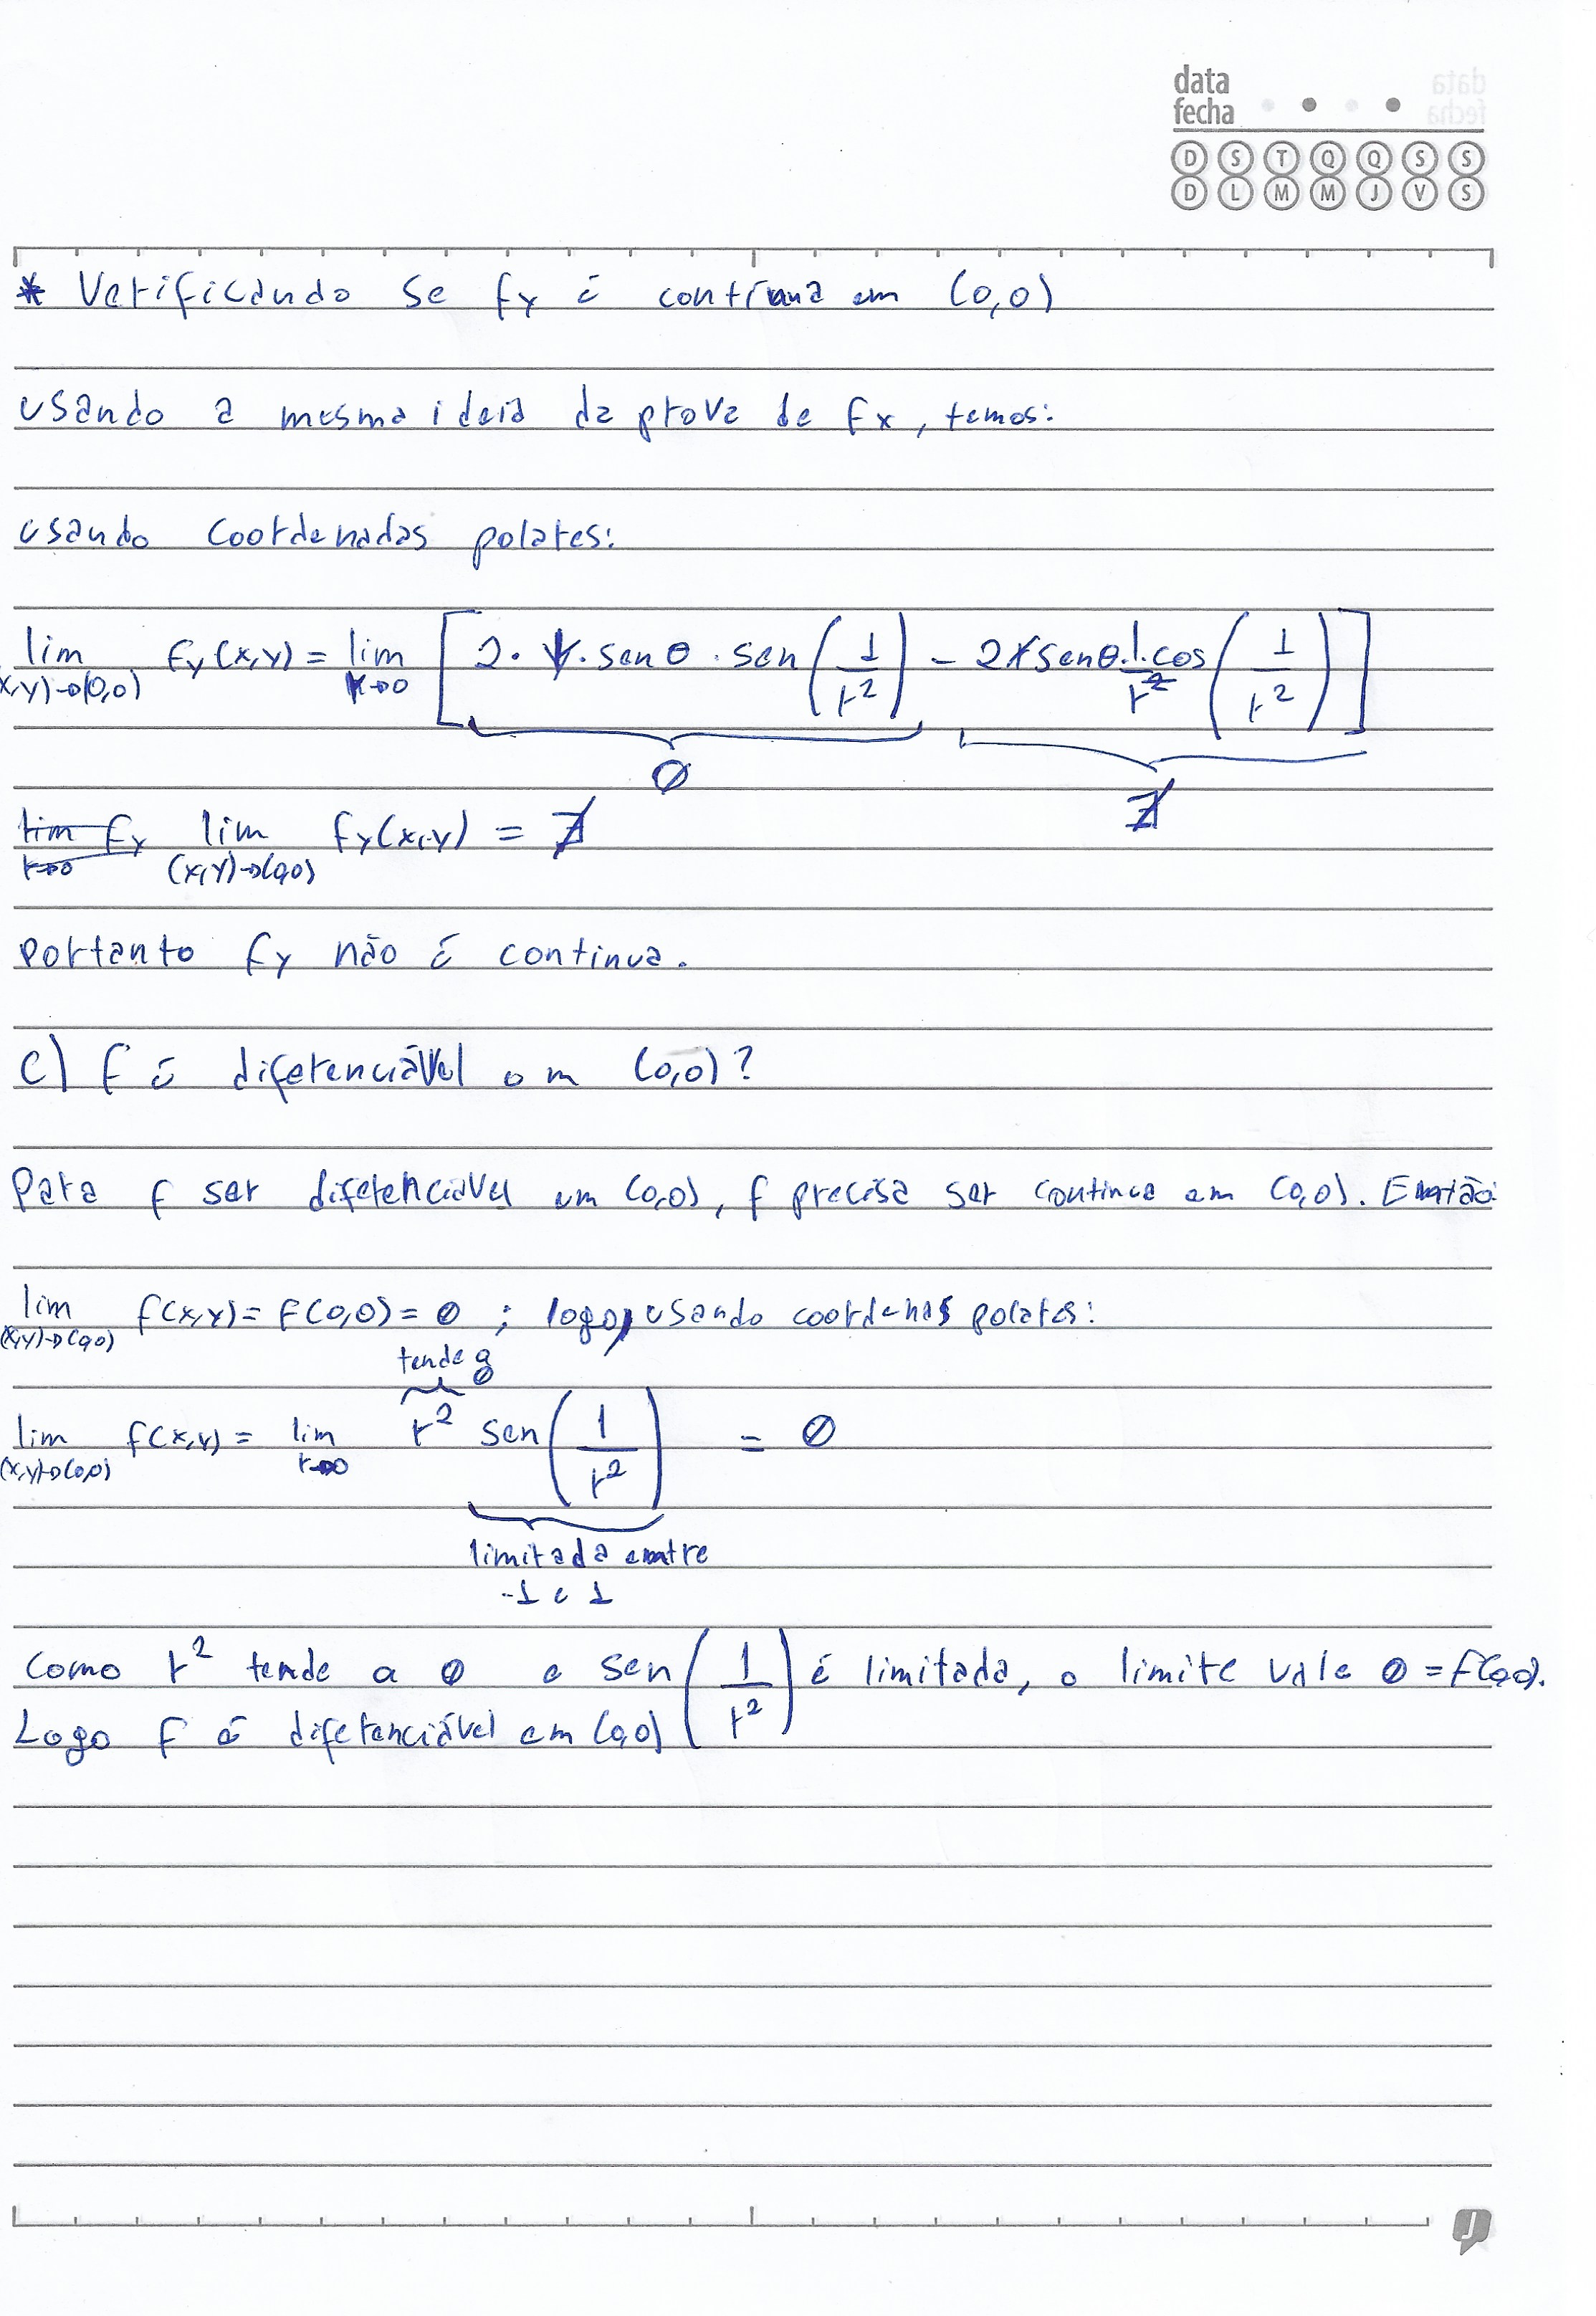 data
fecha
D S T Q Q S S
D L M M J V S
* Verificando se fy é contínua em (0,0)
usando a mesma ideia da prova de fx, temos:
usando coordenadas polares:
lim (x,y)→(0,0) fy(x,y) = lim r→0 [2. r. senθ . sen(1/r²) - 2r senθ. 1/r² . cos(1/r²)]
0 ∄
lim r→0 fy lim (x,y)→(0,0) fy(x,y) = ∄
portanto fy não é continua.
c) f é diferenciável em (0,0)?
Para f ser diferenciavel em (0,0), f precisa ser continua em (0,0). Então
lim (x,y)→(0,0) f(x,y) = f(0,0) = 0 ; logo, usando coordenas polares:
tende a 0
lim (x,y)→(0,0) f(x,y) = lim r→0 r² sen(1/r²) = 0
limitada entre
-1 e 1
como r² tende a 0 e sen(1/r²) é limitada, o limite vale 0 = f(0,0).
Logo f é diferenciável em (0,0)